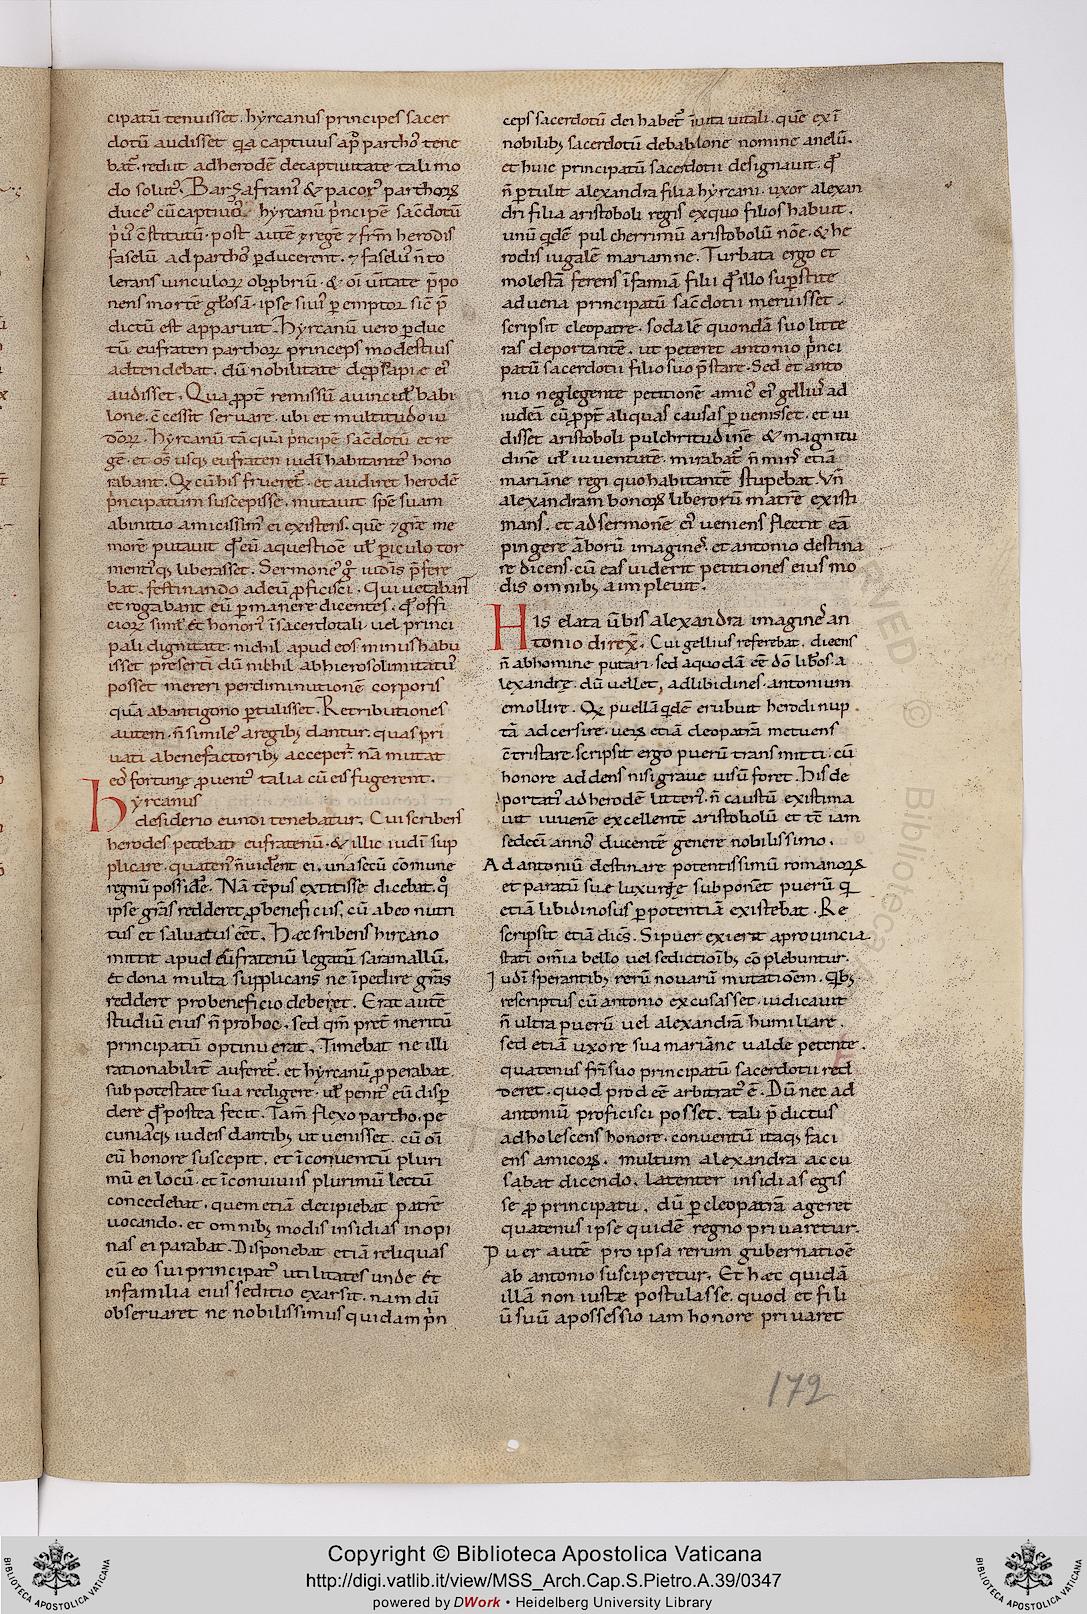 cipatū tenuisset. hyrcanus principes sacer
dotū audisset qa captiuus apᵈ parthoˢ tene
batᷣ. rediit ad herodē de captiuitate tali mo
do solutˀ. Barzafranˢ & pacorˀ parthoꝝ
duceˢ cū captiuū hyrcanū pncipē sacdotū
pˀ cstitutū. post autē regē & frm herodis
faselū ad parthoˢ pducerent. & faselˀ n to
lerans uinculoꝝ obpbriū. & oī ppo
nens mortē glosā. ipse siuiˀ pemptor sic p
dictū est apparuit. Hyrcanū uero pduc
tū eufraten parthoꝝ princeps modestius
adtendebat. dū nobilitate eiˀ
audisset. Qua ppt remissū a uinculˢ babi
lone. cessit seruare. ubi et multitudo iu
deoꝝ. hyrcanū tā quā pncipē sacdotū et re
gē. et oˢ usq; eufraten iudī habitanteˢ hono
rabant. Qꝫ cū his frueretᷣ. et audiret herodē
pncipatum suscepisse. mutauit spē suam
ab initio amicissimˀ ei existens. quē & grat me
morē putauit qd eū a questioē ul piculo tor
mentiq; liberasset. Sermonē g iudis pfere
bat. festinando ad eū pficisci. Qui uetabant
et rogabant eū pmanere dicentes. qd offi
cioꝝ simul et honorˀ ī sacerdotali uel princi
pali dignitate. nichil apud eos minus habu
isset preserti dū nichil ab hierosolimitatiˢ
posset mereri per diminutionē corporis
quā ab antigono ptulisset. Retributiones
autem. n simileˢ a regibˢ dantur. quas pri
uati a benefactoribꝫ acceperᷣ. nā mutat
eoˢ fortunę puentˀ talia cū eis fugerent.
Hyrcanus
desiderio eundi tenebatur. Cui scribens
herodes petebat eufratenū. & illic iudī sup
plicare. quaten n uident ei. una secū comune
regnū possidē. Nā tēpus extitisse dicebat. qd
ipse grās redderet p beneficiis. cū ab eo nutri
tus et saluatus eet. Hęc scribens hircano
mittit apud eufratenū legatū saramallū.
et dona multa supplicans ne īpedire grās
reddere pro beneficio deberet. Erat autē
studiū eius n pro hoc. sed qm pret meritū
principatū optinuerat. Timebat ne illi
rationabilit auferetᷣ. et hyrcanū pperabat
sub potestate sua redigere. ul penitˀ eū disp
dere qd postea fecit. Tam flexo partho. pe
cuniaq; iudeis dantibꝫ ut uenisset. cū oī
eū honore suscepit. et ī conuentū pluri
mū ei locū. et ī conuiuiis plurimū lectū
concedebat. quem etiā decipiebat patrē
uocando. et omnibꝫ modis insidias inopi
nas ei parabat. Disponebat etiā reliquas
cū eo sui principatˀ utilitates unde et
in familia eius seditio exarsit. nam dū
obseruaret ne nobilissimus quidam pin
ceps sacerdotū dei habetᷣ iuta uitali. quē ex ī
nobilibꝫ sacerdotū de bablone nomine anelū.
et huic principatū sacerdotii designauit. qd
n ptulit alexandra filia hyrcani. uxor alexan
dri filia aristoboli regis ex quo filios habuit.
unū qdē pulcherrimū aristobolū noē. & he
rodis iugalē mariamne. Turbata ergo et
molestā ferens īfamiā filii qd illo supstite
aduena principatū sacdotii meruisset.
scripsit cleopatre. sodalē quondā suo litte
ras deportantē. ut peteret antonio pnci
patū sacerdotii filio suo pstare. Sed et anto
nio neglegente petitionē amicˀ eiˀ gelliuˢ ad
iudeā cū ppt aliquas causas puenisset. et ui
disset aristoboli pulchritudinē & magnitu
dinē ul iuuentutē. mirabatᷣ n minˀ etiā
mariāne regi quo habitantē stupebat. Vn
alexandram bonoꝝ liberorū matrē existi
mans. et ad sermonē eiˀ ueniens flectit eā
pingere āborū imagineˢ. et antonio destina
re dicens. cū eas uiderit petitiones eius mo
dis omnibꝫ aimpleuit.
His elata ūbis alexandra imagineˢ an
tonio direx. Cui gellius referebat. diēns
n ab homine putari. sed a quodā eē dō libos a
lexandrę. dū uellet, ad libidines. antonium
emollire. Qꝫ puellā qdē erubuit herodi nup
tā adcersire. ueˢ etiā cleopatrā metuens
ctristare. scripsit ergo puerū transmitti. cū
honore addens nisi graue uisū foret. His de
portatiˢ ad herodē litteriˢ. n caustū existima
uit iuuenē excellentē aristobolū et tē iam
sedecī annoˢ ducentē genere nobilissimo.
Ad antoniū destinare potentissimū romanoꝝ
et paratū suę luxurię subponet puerū q
etiā libidinosus p potentiā existebat. Re
scripsit etiā dics. Si puer exierit a prouincia
statī omīa bello uel sedictioībꝫ complebuntur.
Iudī sperantibꝫ rerū nouarū mutatioēm. Qbꝫ
rescriptus cū antonio excusasset. iudicauit
n ultra puerū uel alexandrā humiliare.
sed etiā uxore sua mariāne ualde petente.
quatenus frī suo principatū sacerdotii red
deret. quod prodeē arbitratˀ ē. Dū nec ad
antoniū proficisci posset. tali pdictus
adholescens honore. conuentū itaq; faci
ens amicoꝝ. multum alexandra accu
sabat dicendo. latenter insidias egis
se p principatu. dū p cleopatrā ageret
quatenus ipse quidē regno priuaretur.
Puer autē pro ipsa rerum gubernatioē
ab antonio susciperetur. Et hęc quidā
illā non iustę postulasse. quod et fili
ū suū a possessio iam honore priuaret
172
RVED © Biblioteca
Copyright © Biblioteca Apostolica Vaticana
http://digi.vatlib.it/view/MSS_Arch.Cap.S.Pietro.A.39/0347
powered by DWork • Heidelberg University Library
BIBLIOTECA APOSTOLICA VATICANA
BIBLIOTECA APOSTOLICA VATICANA